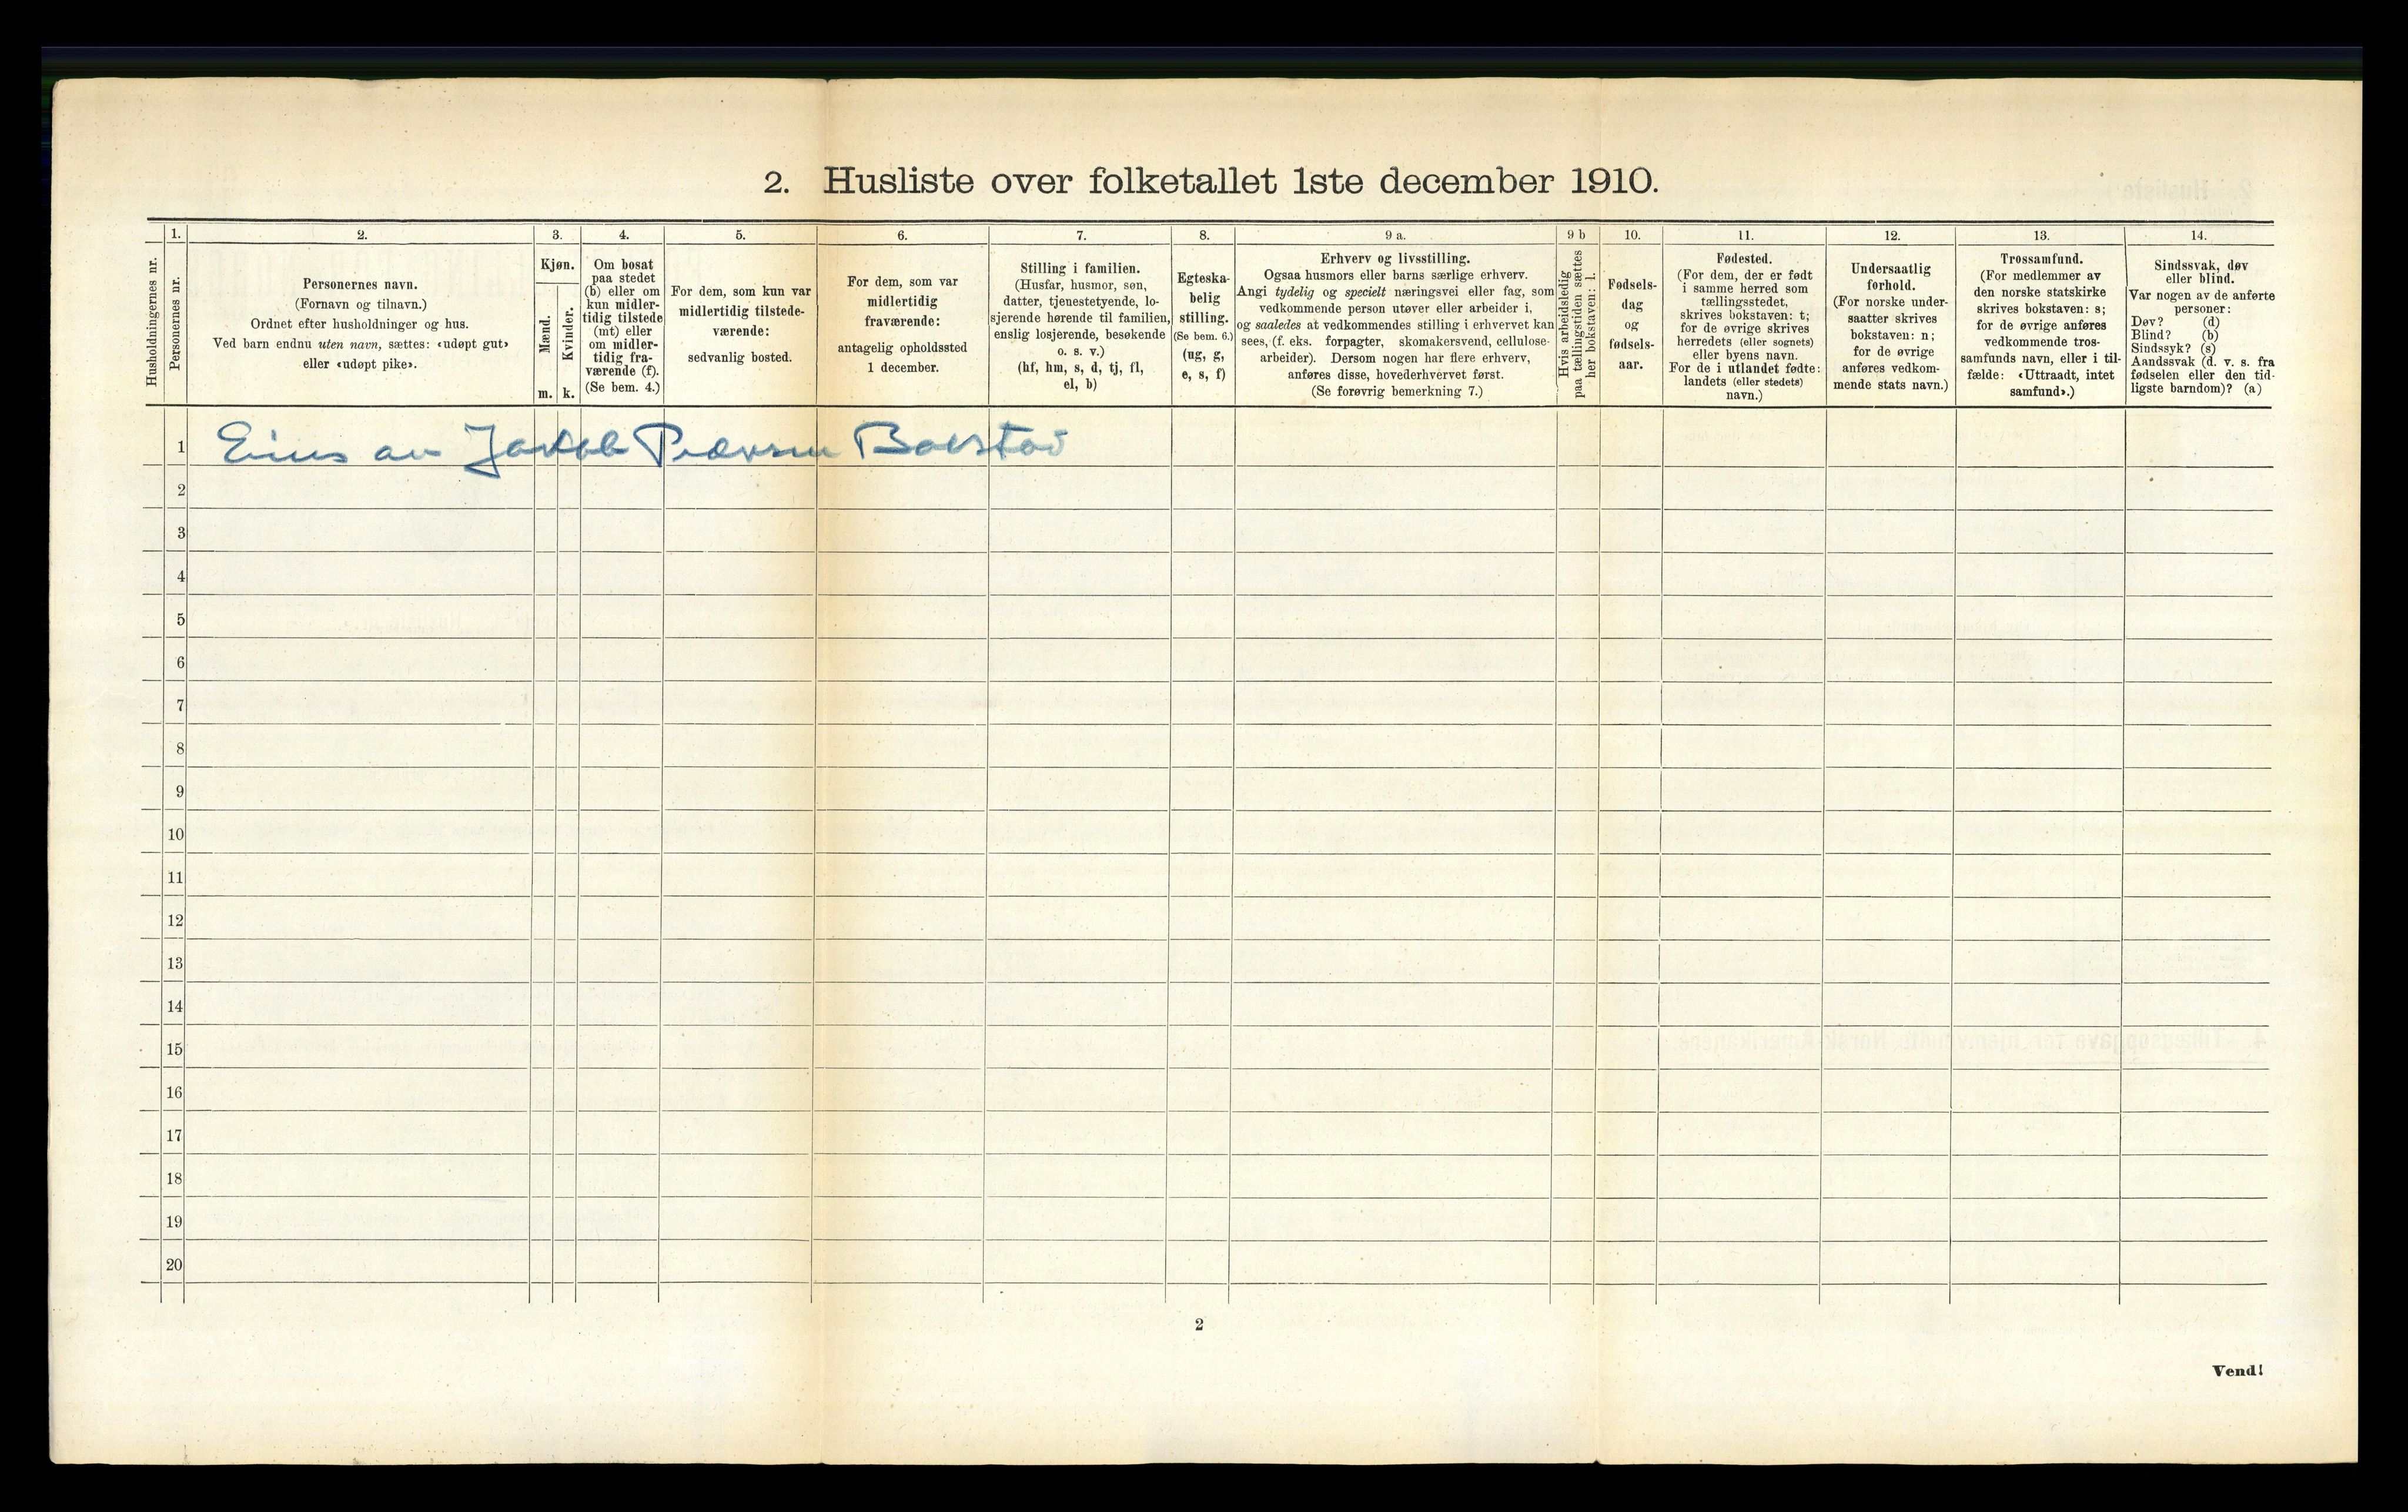 2. Husliste over folketallet 1ste december 1910.
Husholdningernes nr.
1.
Personernes nr.
2.
Personernes navn.
(Fornavn og tilnavn.)
Ordnet efter husholdninger og hus.
Ved barn endnu uten navn, sættes: «udøpt gut»
eller «udøpt pike».
3.
Kjøn.
Mænd.
Kvinder.
m. k.
4.
Om bosat
paa stedet
(b) eller om
kun midler-
tidig tilstede
(mt) eller
om midler-
tidig fra-
værende (f).
(Se bem. 4.)
5.
For dem, som kun var
midlertidig tilstede-
værende:
sedvanlig bosted.
6.
For dem, som var
midlertidig
fraværende:
antagelig opholdssted
1 december.
7.
Stilling i familien.
(Husfar, husmor, søn,
datter, tjenestetyende, lo-
sjerende hørende til familien,
enslig losjerende, besøkende
o. s. v.)
(hf, hm, s, d, tj, fl,
el, b)
8.
Egteska-
belig
stilling.
(Se bem. 6.)
(ug, g,
e, s, f)
9 a.
Erhverv og livsstilling.
Ogsaa husmors eller barns særlige erhverv.
Angi tydelig og specielt næringsvei eller fag, som
vedkommende person utøver eller arbeider i,
og saaledes at vedkommendes stilling i erhvervet kan
sees, (f. eks. forpagter, skomakersvend, cellulose-
arbeider). Dersom nogen har flere erhverv,
anføres disse, hovederhvervet først.
(Se forøvrig bemerkning 7.)
9 b
Hvis arbeidsledig
paa tællingstiden sættes
her bokstaven: l.
10.
Fødsels-
dag
og
fødsels-
aar.
11.
Fødested.
(For dem, der er født
i samme herred som
tællingsstedet,
skrives bokstaven: t;
for de øvrige skrives
herredets (eller sognets)
eller byens navn.
For de i utlandet fødte:
landets (eller stedets)
navn.)
12.
Undersaatlig
forhold.
(For norske under-
saatter skrives
bokstaven: n;
for de øvrige
anføres vedkom-
mende stats navn.)
13.
Trossamfund.
(For medlemmer av
den norske statskirke
skrives bokstaven: s;
for de øvrige anføres
vedkommende tros-
samfunds navn, eller i til-
fælde: «Uttraadt, intet
samfund».)
14.
Sindssvak, døv
eller blind.
Var nogen av de anførte
personer:
Døv? (d)
Blind? (b)
Sindssyk? (s)
Aandssvak (d. v. s. fra
fødselen eller den tid-
ligste barndom)? (a)
1 av Jakob
2
3
4
5
6
7
8
9
10
11
12
13
14
15
16
17
18
19
20
2
Vend!